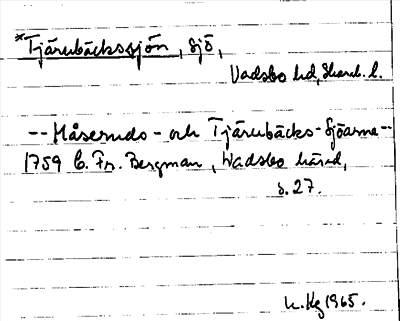 *Tjärubäckssjön, sjö,
Vadsbo hd, Skarab. l.
-- Håseruds- och Tjärubäcks-Sjöarna --
1759 C. Fr. Bergman, Wadsbo härad,
s. 27.
1965.